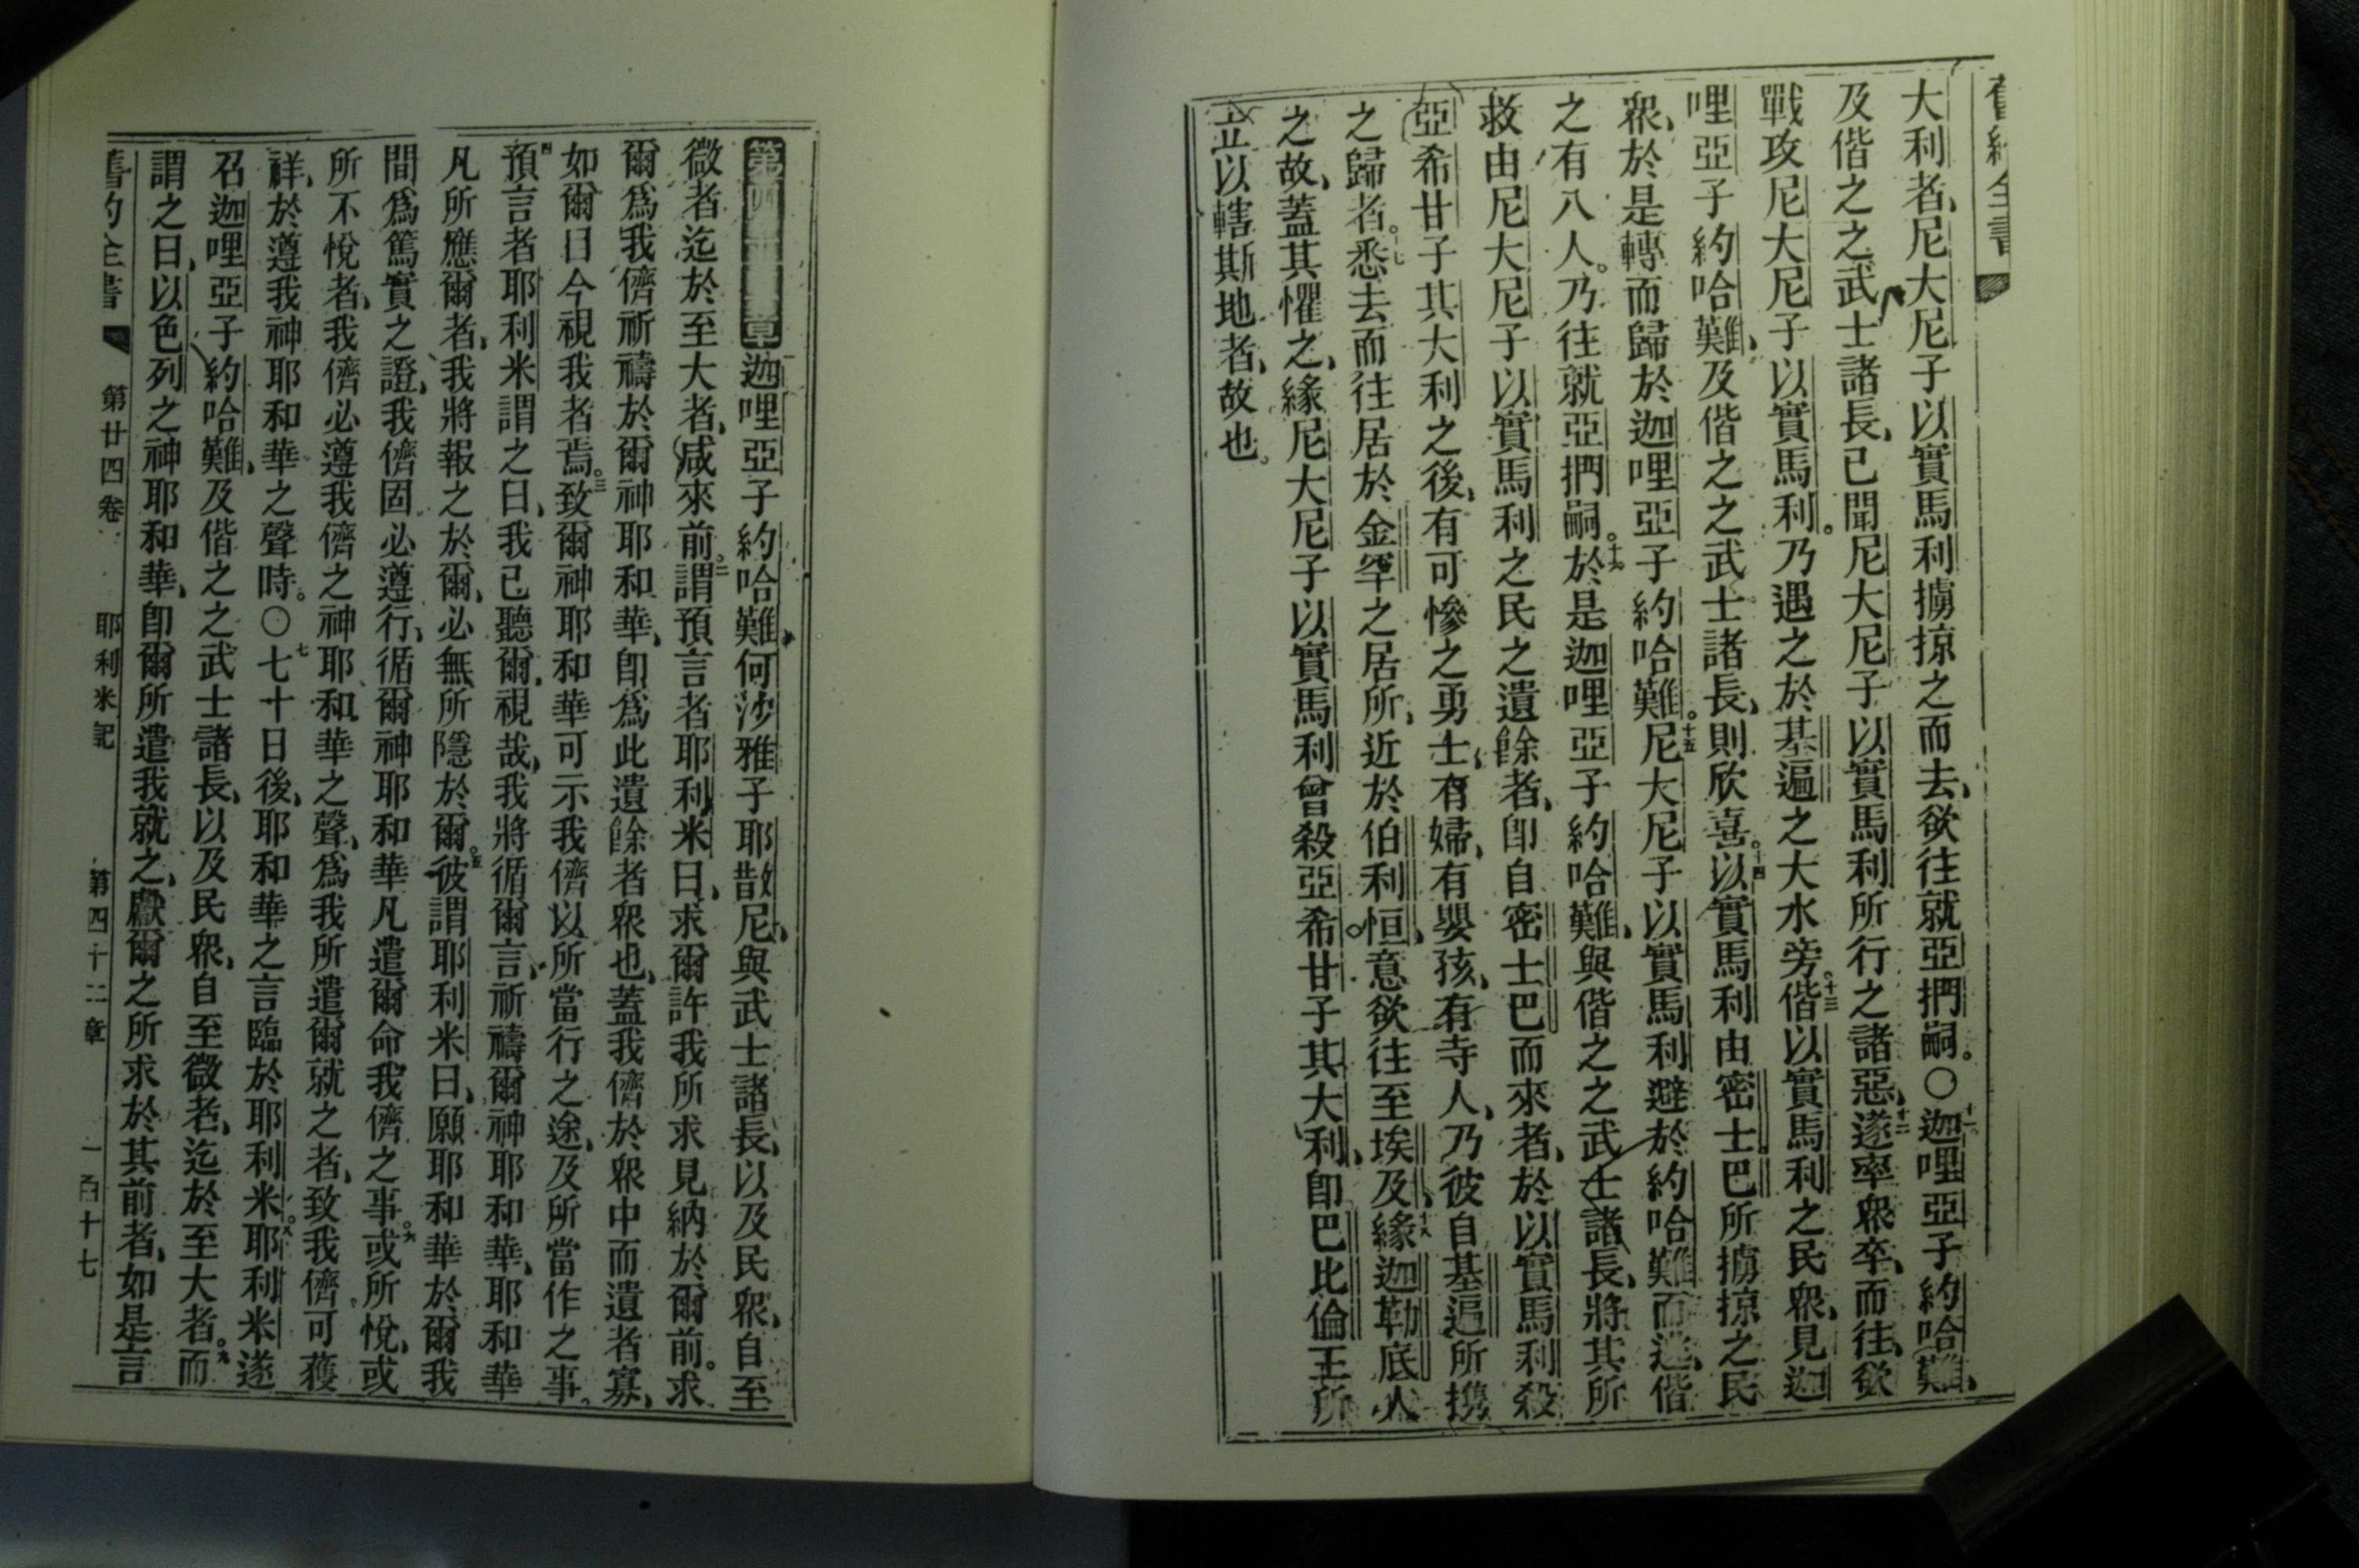 舊約全書
大利者、尼大尼子以實馬利擄掠之而去、欲往就亞捫嗣。〇十一迦哩亞子約哈難、
及偕之之武士諸長、已聞尼大尼子以實馬利所行之諸惡、十二遂率衆卒、而往、欲
戰攻尼大尼子以實馬利。乃遇之於基遍之大水旁。十三偕以實馬利之民衆、見迦
哩亞子約哈難、及偕之之武士諸長、則欣喜。十四以實馬利由密士巴所擄掠之民
衆、於是轉而歸於迦哩亞子約哈難。十五尼大尼子以實馬利避於約哈難而逃、偕
之有八人。乃往就亞捫嗣。十六於是迦哩亞子約哈難、與偕之之武士諸長、將其所
救由尼大尼子以實馬利之民之遺餘者、卽自密士巴而來者、於以實馬利殺
亞希甘子其大利之後、有可慘之勇士、有婦、有嬰孩、有寺人、乃彼自基遍所携
之歸者。十七悉去而往居於金罕之居所、近於伯利恒、意欲往至埃及、十八緣迦勒底人
之故、蓋其懼之、緣尼大尼子以實馬利曾殺亞希甘子其大利、卽巴比倫王所
立以轄斯地者、故也。
第四十二章一迦哩亞子約哈難、何沙雅子耶散尼、與武士諸長、以及民衆、自至
微者迄於至大者、咸來前。二謂預言者耶利米曰、求爾許我所求見納於爾前。求
爾爲我儕祈禱於爾神耶和華、卽爲此遺餘者衆也、蓋我儕於衆中而遺者寡、
如爾日今視我者焉。三致爾神耶和華可示我儕以所當行之途、及所當作之事。
四預言者耶利米謂之曰、我已聽爾、視哉、我將循爾言、祈禱爾神耶和華、耶和華
凡所應爾者、我將報之於爾、必無所隱於爾。五彼謂耶利米曰、願耶和華於爾我
間爲篤實之證、我儕固必遵行、循爾神耶和華凡遣爾命我儕之事。六或所悅、或
所不悅者、我儕必遵我儕之神耶和華之聲、爲我所遣爾就之者、致我儕可獲
祥、於遵我神耶和華之聲時。〇七七十日後、耶和華之言臨於耶利米。八耶利米遂
召迦哩亞子約哈難、及偕之之武士諸長、以及民衆、自至微者、迄於至大者。九而
謂之曰、以色列之神耶和華、卽爾所遣我就之、獻爾之所求於其前者、如是言
舊約全書 第廿四卷 耶利米記 第四十二章 一百十七